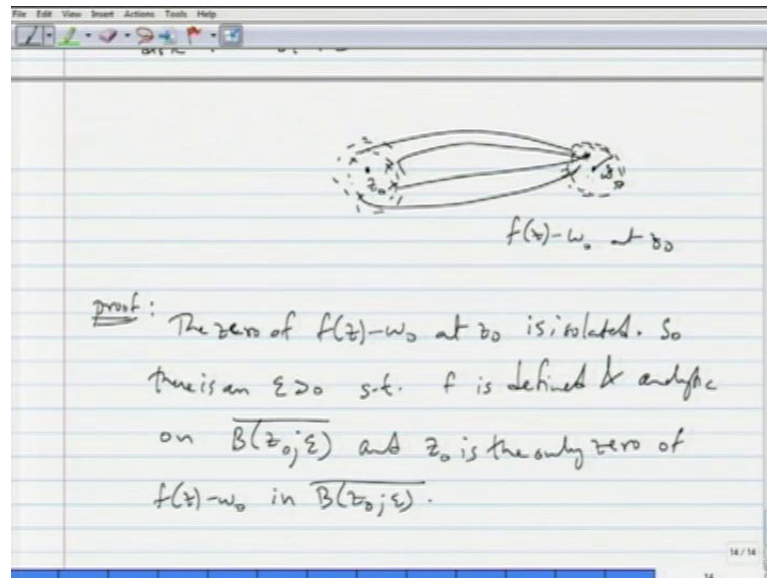 File Edit View Insert Actions Tools Help
z₀
w₀
f(z)-w₀ at z₀
proof: The zero of f(z)-w₀ at z₀ is isolated. So
there is an ε>0 s.t. f is defined & analytic
on \overline{B(z₀;ε)} and z₀ is the only zero of
f(z)-w₀ in \overline{B(z₀;ε)}.
14/14